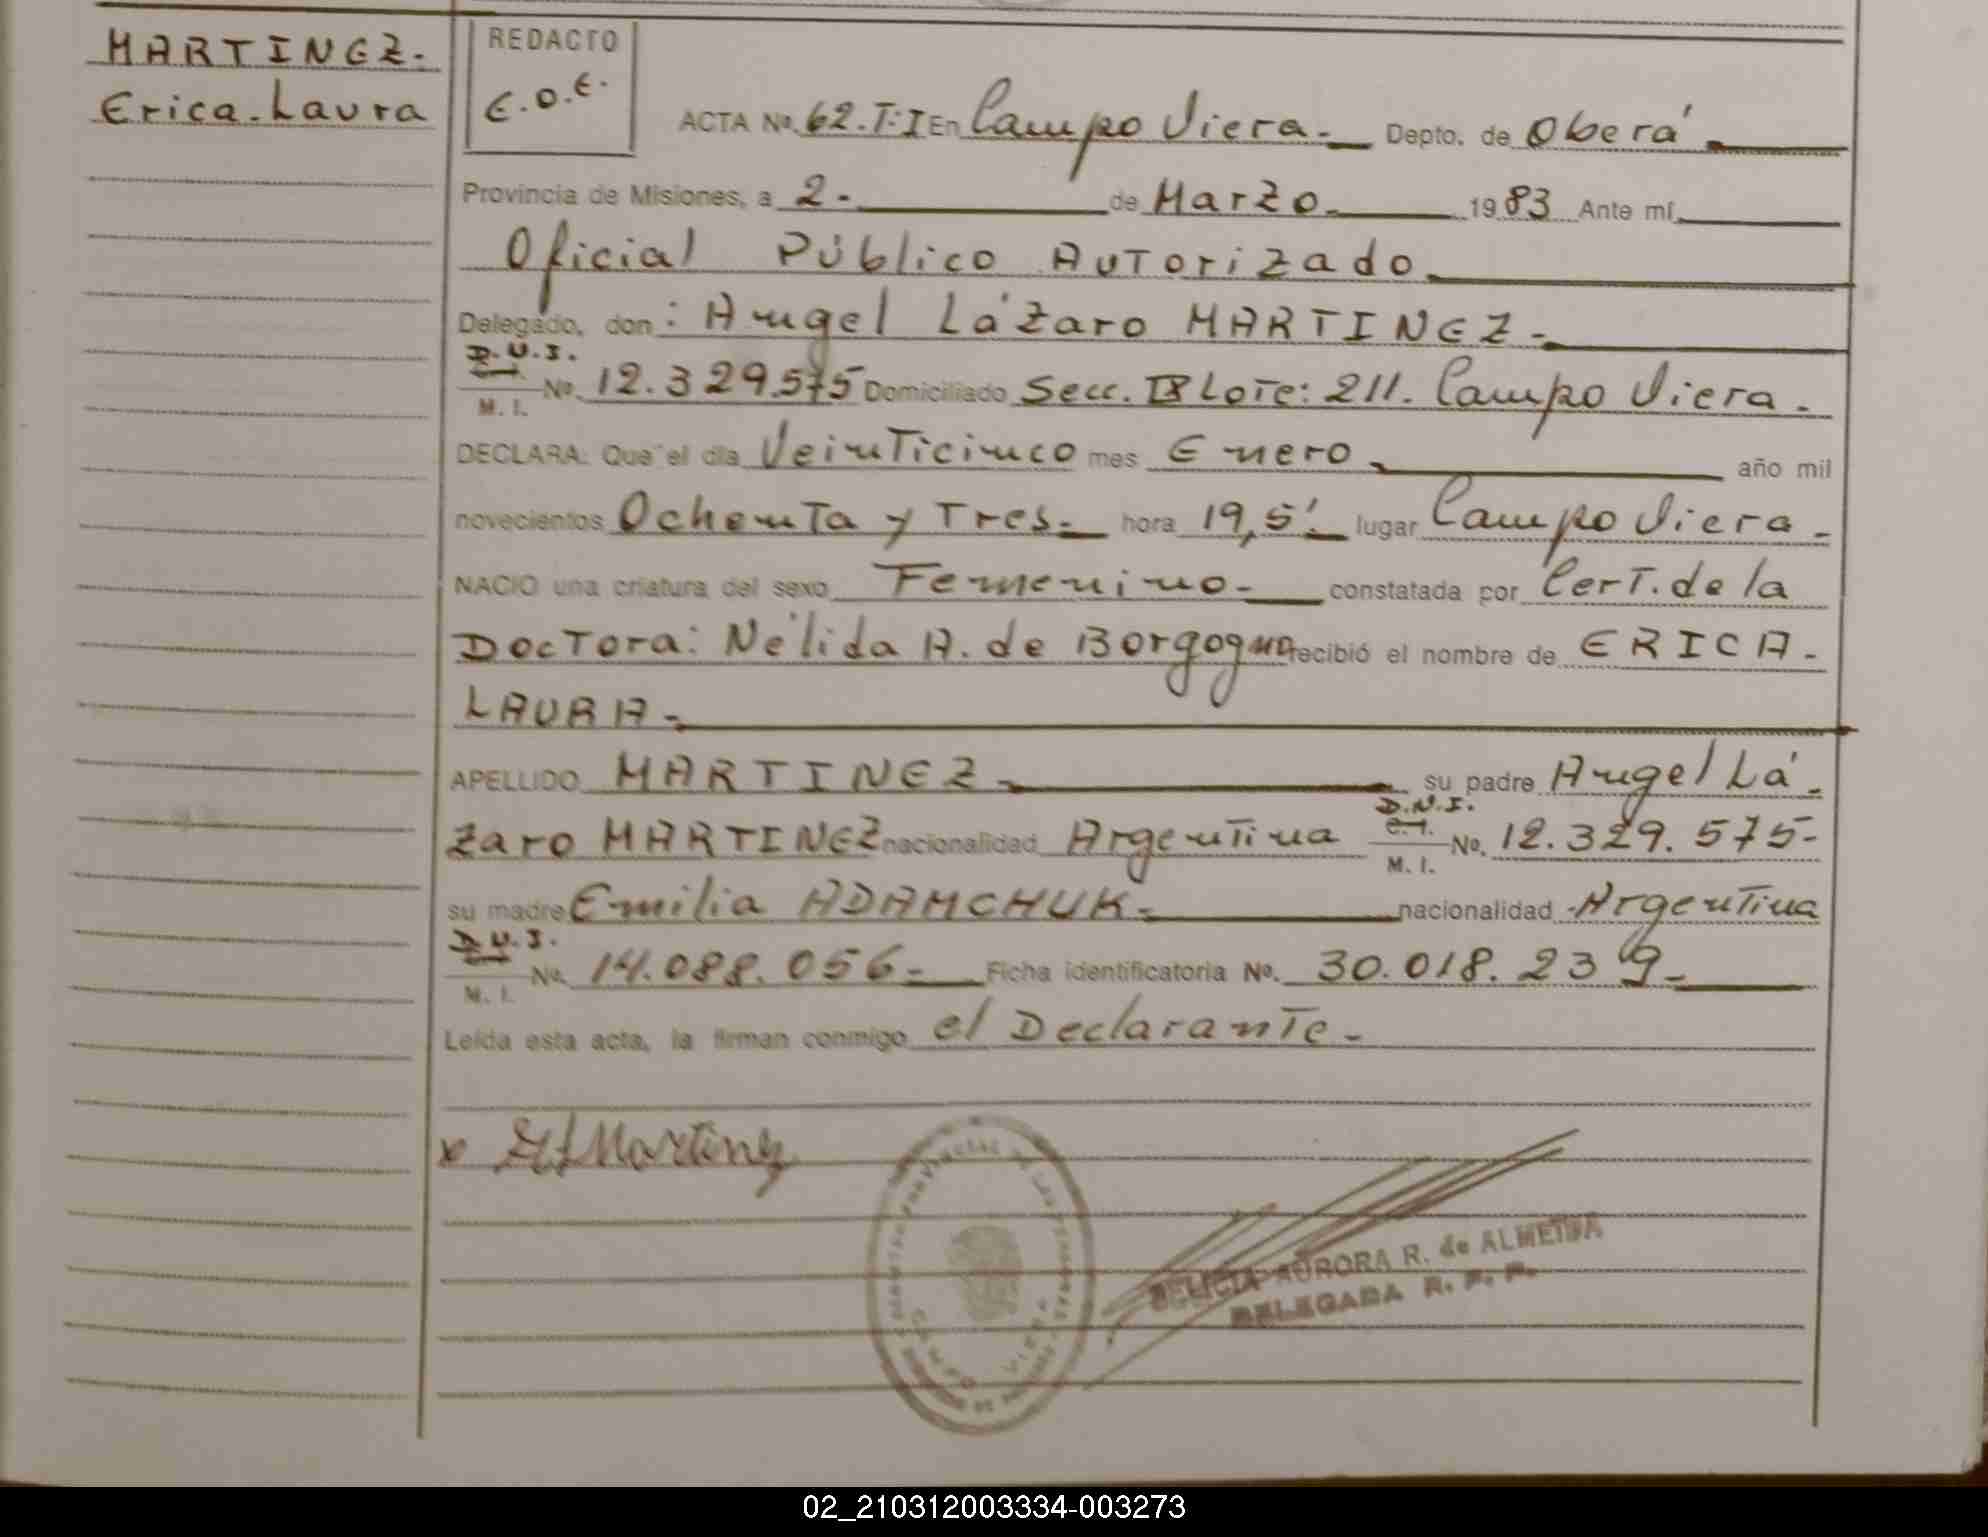 MARTINEZ.
Erica.Laura
REDACTO
E.O.E.
ACTA Nº 62.T:I En Campo Viera.- Depto. de Oberá.
Provincia de Misiones, a 2.- de Marzo. 1983 Ante mí
Oficial Público Autorizado.
Delegado, don: Angel Lázaro MARTINEZ.-
D.N.I.
M. I. Nº. 12.329.575 Domiciliado Secc. IX Lote: 211. Campo Viera.
DECLARA: Que el día Veinticinco mes Enero. año mil
novecientos Ochenta y Tres.- hora 19,5'.- lugar Campo Viera.
NACIO una criatura del sexo Femenino.- constatada por Cert. de la
Doctora: Nélida A. de Borgogno recibió el nombre de ERICA.
LAURA.-
APELLIDO MARTINEZ.- su padre Angel Lá-
zaro MARTINEZ nacionalidad Argentina D.N.I. C.I. M. I. Nº. 12.329.575-
su madre Emilia ADAMCHUK.- nacionalidad Argentina
D.N.I.
M. I. Nº. 14.088.056.- Ficha identificatoria Nº. 30.018.239.-
Leída esta acta, la firman conmigo el Declarante.-
x Martinez
CAMPO VIERA
AURORA R. de ALMEIDA
DELEGADA R. P. P.
02_210312003334-003273